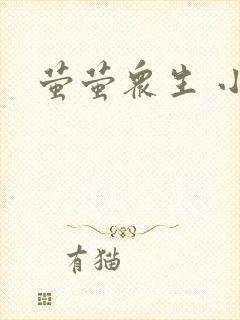 萤萤众生 小
有猫